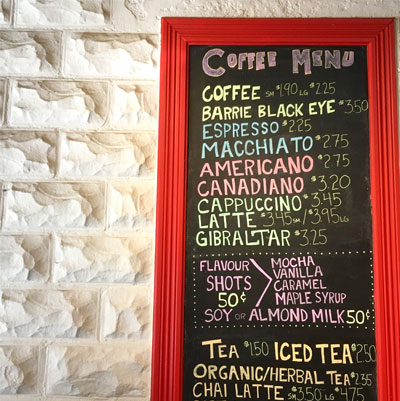 COFFEE MENU
COFFEE SM $1.90 LG $2.25
BARRIE BLACK EYE $3.50
ESPRESSO $2.25
MACCHIATO $2.75
AMERICANO $2.75
CANADIANO $3.20
CAPPUCCINO $3.45
LATTE $3.45 SM / $3.95 LG
GIBRALTAR $3.25
FLAVOUR SHOTS 50¢
MOCHA
VANILLA
CARAMEL
MAPLE SYRUP
SOY OR ALMOND MILK 50¢
TEA $1.50 ICED TEA $2.50
ORGANIC/HERBAL TEA $2.35
CHAI LATTE SM $3.50 LG $4.75